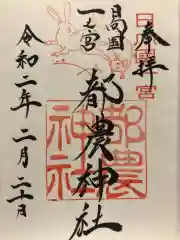 奉拝
日向國
一之宮
都農神社
都農神社
令和二年二月二十日